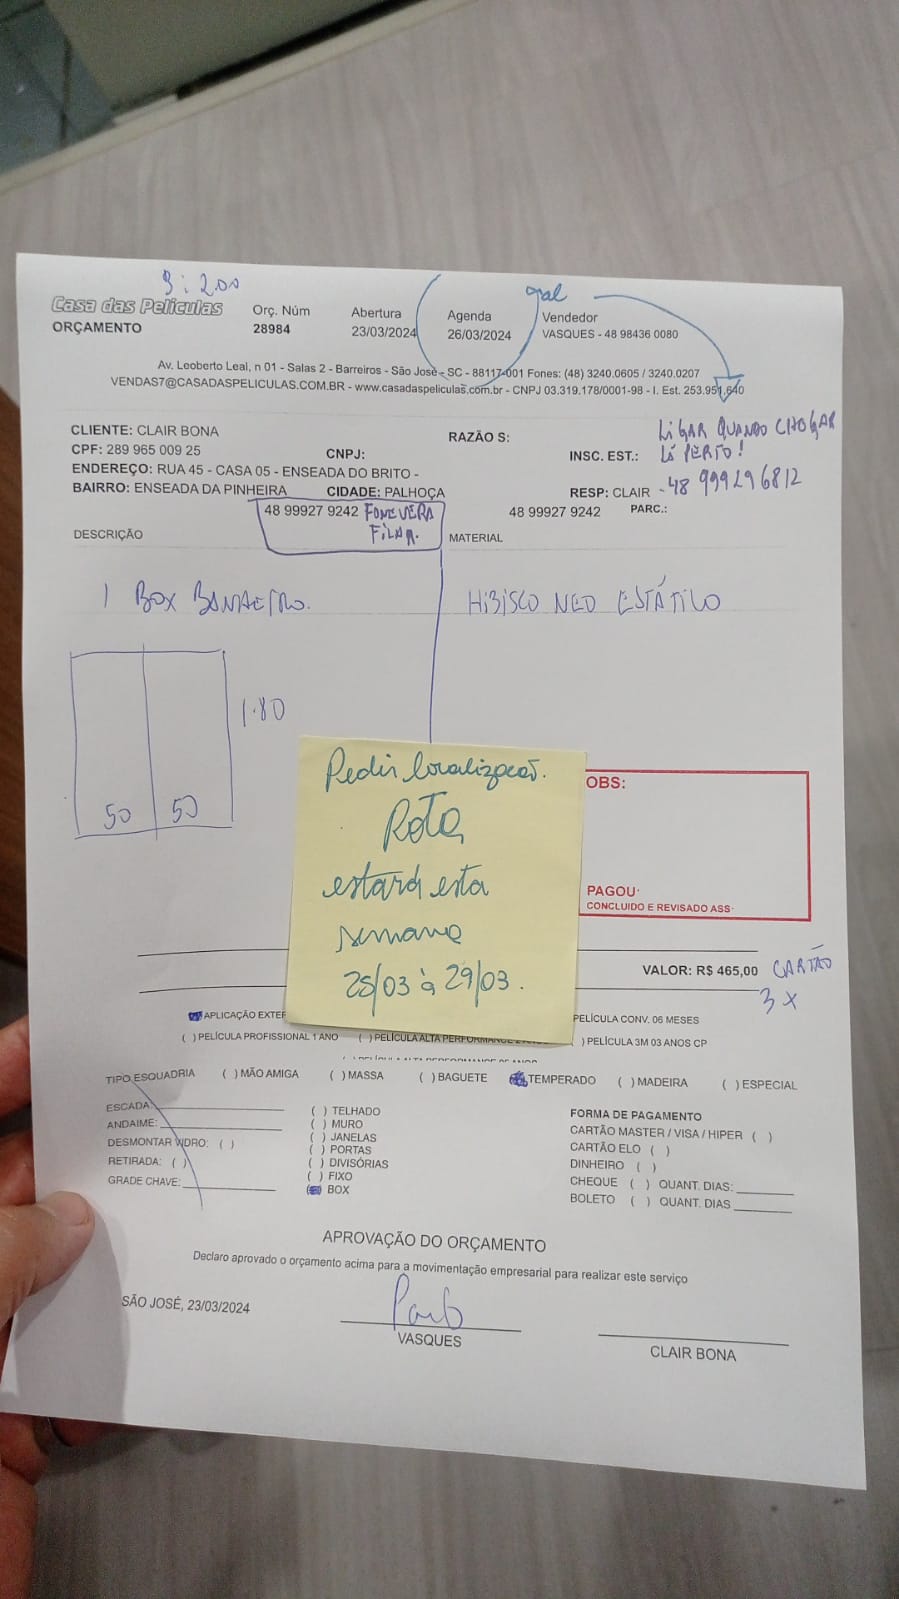 3:200
Casa das Peliculas
ORÇAMENTO
Orç. Núm
28984
Abertura
23/03/2024
Agenda
26/03/2024
Vendedor
VASQUES - 48 98436 0080
Av. Leoberto Leal, n 01 - Salas 2 - Barreiros - São José - SC - 88117-001 Fones: (48) 3240.0605 / 3240.0207
VENDAS7@CASADASPELICULAS.COM.BR - www.casadaspeliculas.com.br - CNPJ 03.319.178/0001-98 - I. Est. 253.951.640
CLIENTE: CLAIR BONA
RAZÃO S:
LIGAR QUANDO CHEGAR
CPF: 289 965 009 25
CNPJ:
INSC. EST.:
LÁ PERTO!
ENDEREÇO: RUA 45 - CASA 05 - ENSEADA DO BRITO -
BAIRRO: ENSEADA DA PINHEIRA
CIDADE: PALHOÇA
RESP: CLAIR - 48 999296812
48 99927 9242 FONE VERA
FILHA.
48 99927 9242
PARC.:
DESCRIÇÃO
MATERIAL
1 BOX BANHEIRO.
HIBISCO NEO ESTÁTICO
1.80
50
50
Pedir localização.
Rota
estará esta
semana
25/03 à 29/03.
OBS:
PAGOU:
CONCLUIDO E REVISADO ASS:
VALOR: R$ 465,00 CARTÃO
3 X
APLICAÇÃO EXTER
PELÍCULA CONV. 06 MESES
( ) PELÍCULA PROFISSIONAL 1 ANO
( ) PELÍCULA ALTA PERFORMANCE
) PELÍCULA 3M 03 ANOS CP
TIPO ESQUADRIA ( ) MÃO AMIGA ( ) MASSA ( ) BAGUETE TEMPERADO ( ) MADEIRA ( ) ESPECIAL
ESCADA:
ANDAIME:
DESMONTAR VIDRO: ( )
RETIRADA: ( )
GRADE CHAVE:
( ) TELHADO
( ) MURO
( ) JANELAS
( ) PORTAS
( ) DIVISÓRIAS
( ) FIXO
BOX
FORMA DE PAGAMENTO
CARTÃO MASTER / VISA / HIPER ( )
CARTÃO ELO ( )
DINHEIRO ( )
CHEQUE ( ) QUANT. DIAS:
BOLETO ( ) QUANT. DIAS
APROVAÇÃO DO ORÇAMENTO
Declaro aprovado o orçamento acima para a movimentação empresarial para realizar este serviço
SÃO JOSÉ, 23/03/2024
VASQUES
CLAIR BONA